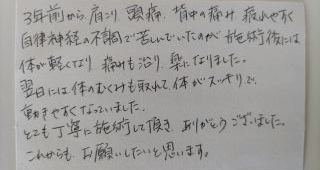 3年前から、肩こり、頭痛、背中の痛み 疲れやすく
自律神経の不調で苦しいでいたのが 施術後には
体が軽くなり 痛みも治り、楽になりました。
翌日には体のむくみも取れて、体がスッキリで、
動きやすくなっていました。
とても丁寧に施術して頂き、ありがとうございました。
これからも、お願いしたいと思います。